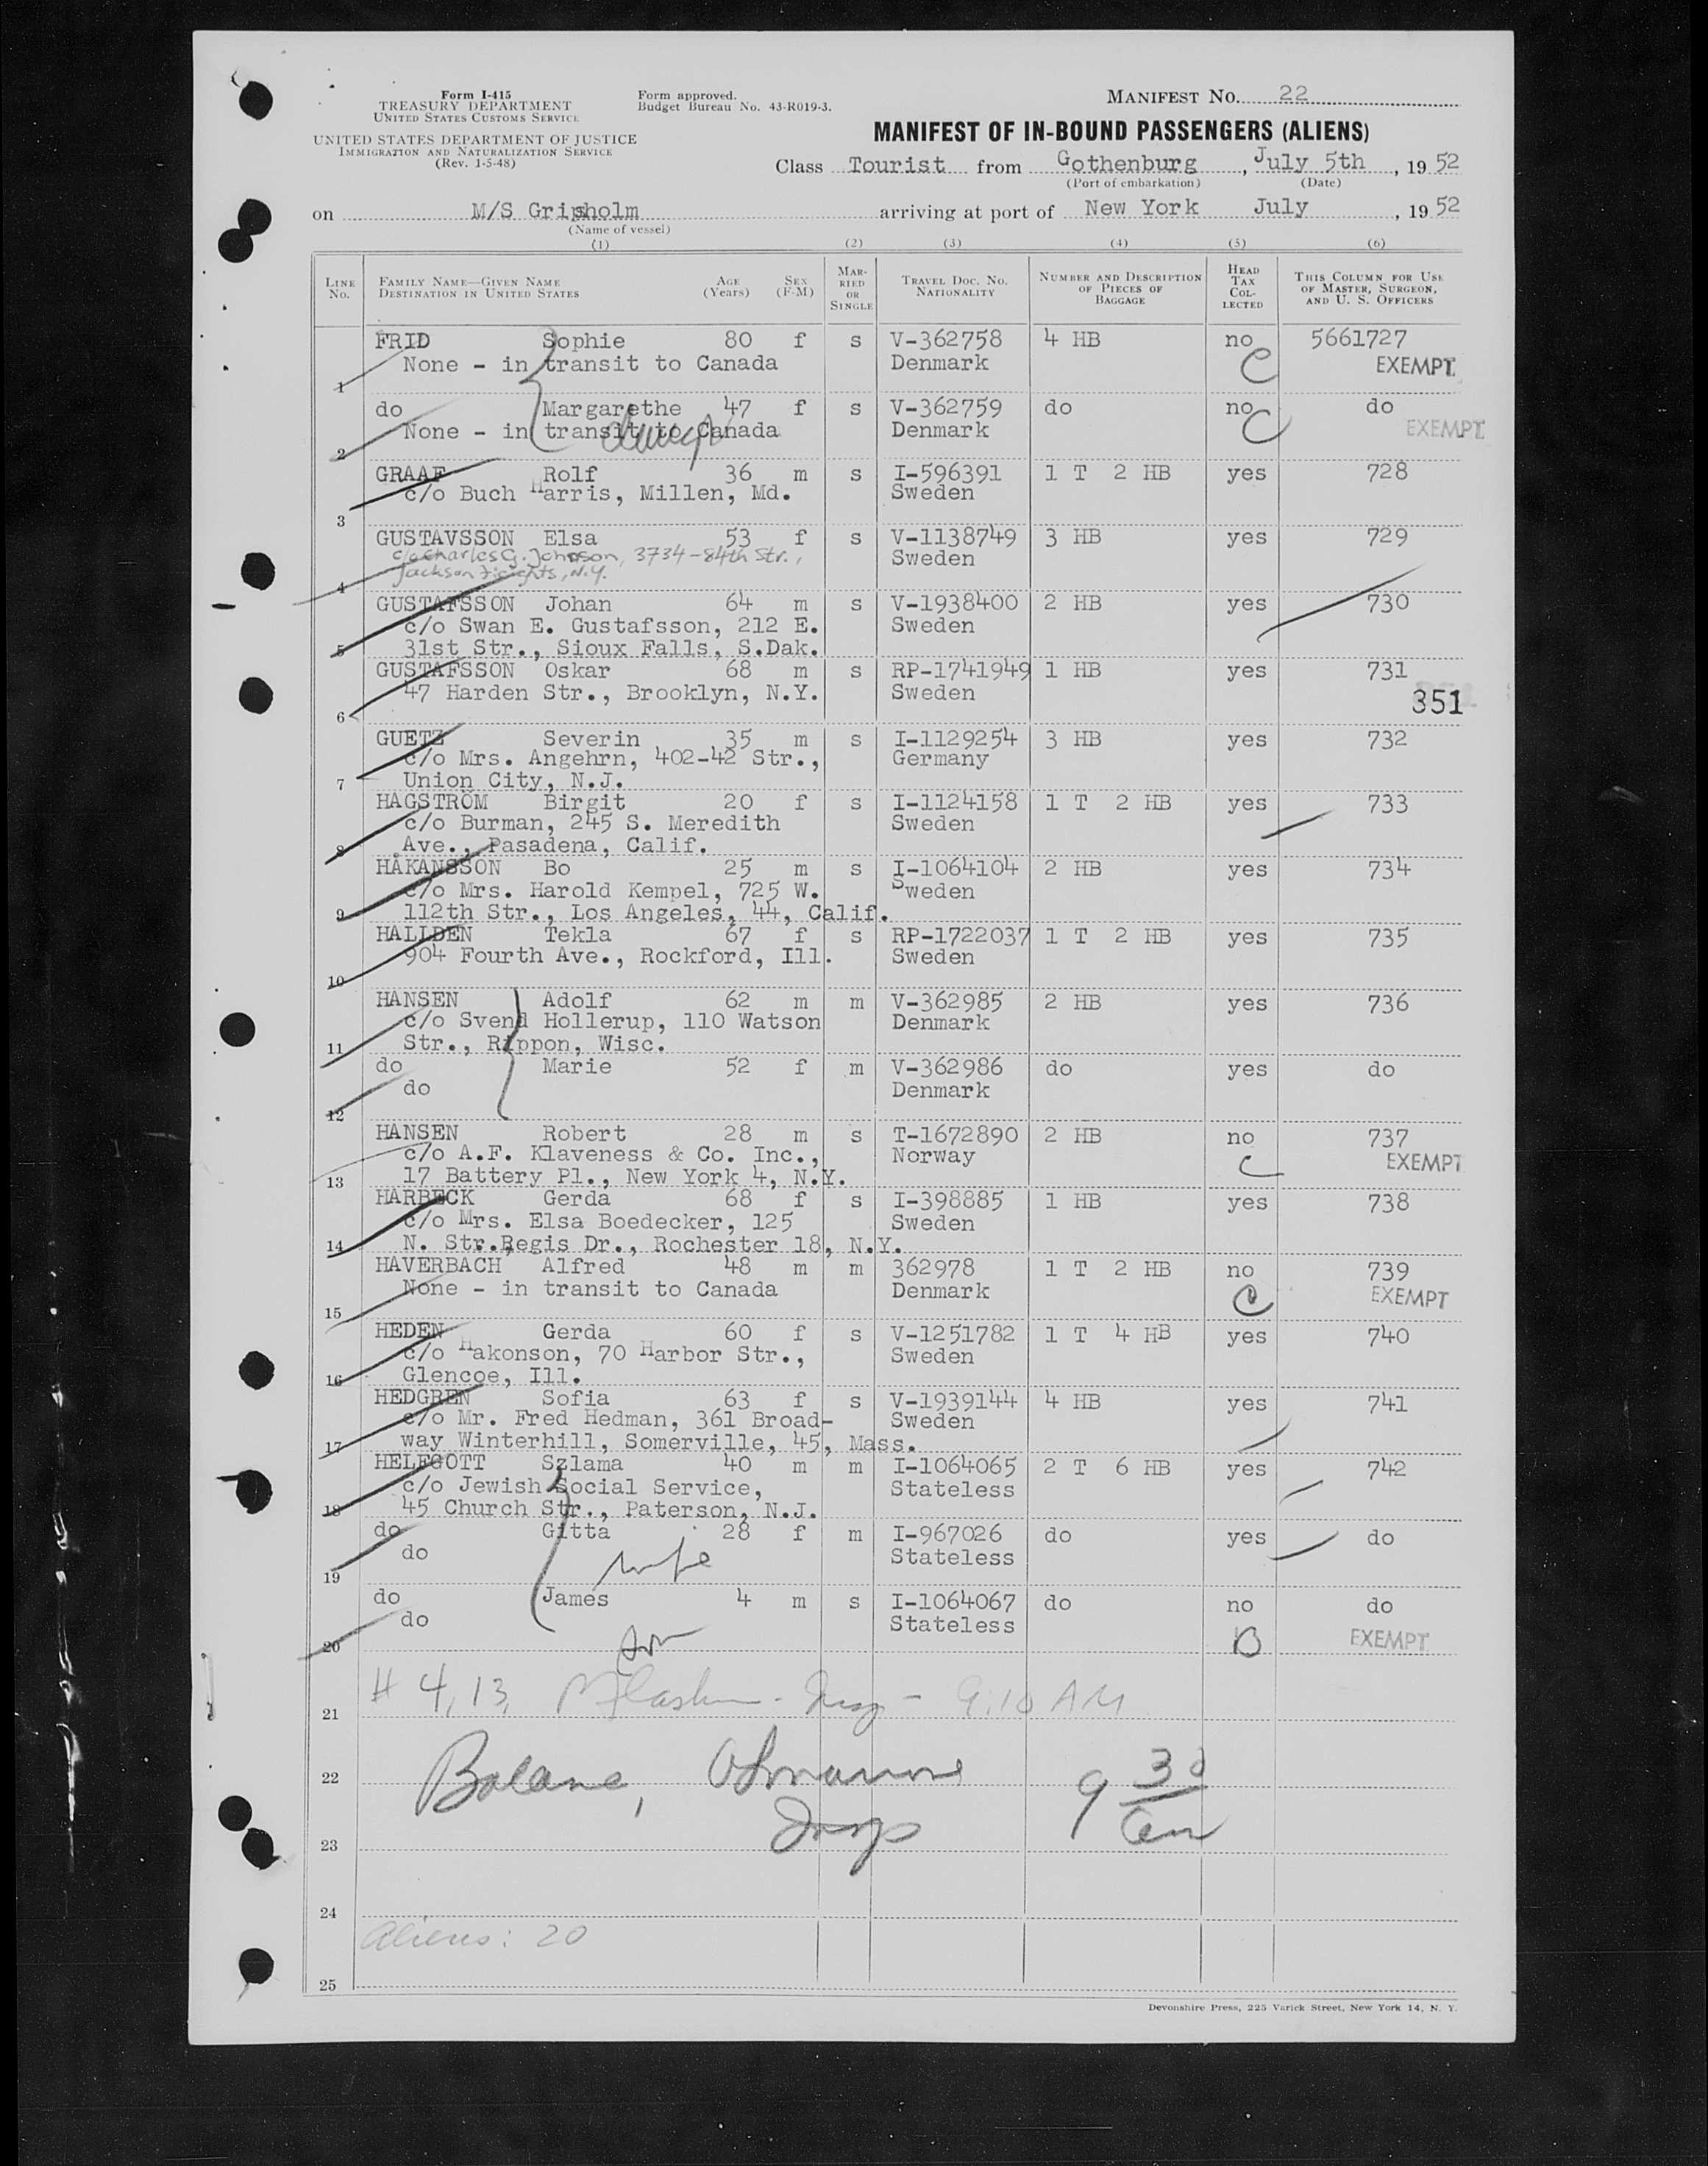 Form I-415
TREASURY DEPARTMENT
UNITED STATES CUSTOMS SERVICE
UNITED STATES DEPARTMENT OF JUSTICE
IMMIGRATION AND NATURALIZATION SERVICE
(Rev. 1-5-48)
Form approved.
Budget Bureau No. 43-R019-3.
MANIFEST NO. 22
MANIFEST OF IN-BOUND PASSENGERS (ALIENS)
Class Tourist from Gothenburg, July 5th, 1952
(Port of embarkation) (Date)
on M/S Gripsholm arriving at port of New York July, 1952
(Name of vessel)
(1) (2) (3) (4) (5) (6)
LINE NO. FAMILY NAME—GIVEN NAME DESTINATION IN UNITED STATES AGE (Years) SEX (F-M) MARRIED OR SINGLE TRAVEL DOC. NO. NATIONALITY NUMBER AND DESCRIPTION OF PIECES OF BAGGAGE HEAD TAX COLLECTED THIS COLUMN FOR USE OF MASTER, SURGEON, AND U. S. OFFICERS
FRID Sophie 80 f s V-362758 4 HB no 5661727
None - in transit to Canada Denmark C EXEMPT
1
do Margarethe 47 f s V-362759 do no do
None - in transit to Canada Denmark C EXEMPT
2
GRAAF Rolf 36 m s I-596391 1 T 2 HB yes 728
c/o Buch Harris, Millen, Md. Sweden
3
GUSTAVSSON Elsa 53 f s V-1138749 3 HB yes 729
c/o Charles G. Johnson, 3734-84th Str., Sweden
Jackson Heights, N.Y.
4
GUSTAFSSON Johan 64 m s V-1938400 2 HB yes 730
c/o Swan E. Gustafsson, 212 E. Sweden
5 31st Str., Sioux Falls, S.Dak.
GUSTAFSSON Oskar 68 m s RP-1741949 1 HB yes 731
47 Harden Str., Brooklyn, N.Y. Sweden 351
6
GUETZ Severin 35 m s I-1129254 3 HB yes 732
c/o Mrs. Angehrn, 402-42 Str., Germany
7 Union City, N.J.
HAGSTRÖM Birgit 20 f s I-1124158 1 T 2 HB yes 733
c/o Burman, 245 S. Meredith Sweden
8 Ave., Pasadena, Calif.
HÅKANSSON Bo 25 m s I-1064104 2 HB yes 734
c/o Mrs. Harold Kempel, 725 W. Sweden
9 112th Str., Los Angeles, 44, Calif.
HALLDÉN Tekla 67 f s RP-1722037 1 T 2 HB yes 735
904 Fourth Ave., Rockford, Ill. Sweden
10
HANSEN Adolf 62 m m V-362985 2 HB yes 736
c/o Svend Hollerup, 110 Watson Denmark
11 Str., Rippon, Wisc.
do Marie 52 f m V-362986 do yes do
do Denmark
12
HANSEN Robert 28 m s T-1672890 2 HB no 737
c/o A.F. Klaveness & Co. Inc., Norway C EXEMPT
13 17 Battery Pl., New York 4, N.Y.
HARBECK Gerda 68 f s I-398885 1 HB yes 738
c/o Mrs. Elsa Boedecker, 125 Sweden
14 N. Str.Regis Dr., Rochester 18, N.Y.
HAVERBACH Alfred 48 m m 362978 1 T 2 HB no 739
None - in transit to Canada Denmark C EXEMPT
15
HEDEN Gerda 60 f s V-1251782 1 T 4 HB yes 740
c/o Hakonson, 70 Harbor Str., Sweden
16 Glencoe, Ill.
HEDGREN Sofia 63 f s V-1939144 4 HB yes 741
c/o Mr. Fred Hedman, 361 Broad- Sweden
17 way Winterhill, Somerville, 45, Mass.
HELFGOTT Szlama 40 m m I-1064065 2 T 6 HB yes 742
c/o Jewish Social Service, Stateless
18 45 Church Str., Paterson, N.J.
do Gitta 28 f m I-967026 do yes do
do wife Stateless
19
do James 4 m s I-1064067 do no do
do Stateless EXEMPT
20 son
# 4, 13, Insp - 9:10 AM
21
22 Balance, 9 30
Insp am
23
24
Aliens: 20
25
Devonshire Press, 225 Varick Street, New York 14, N. Y.